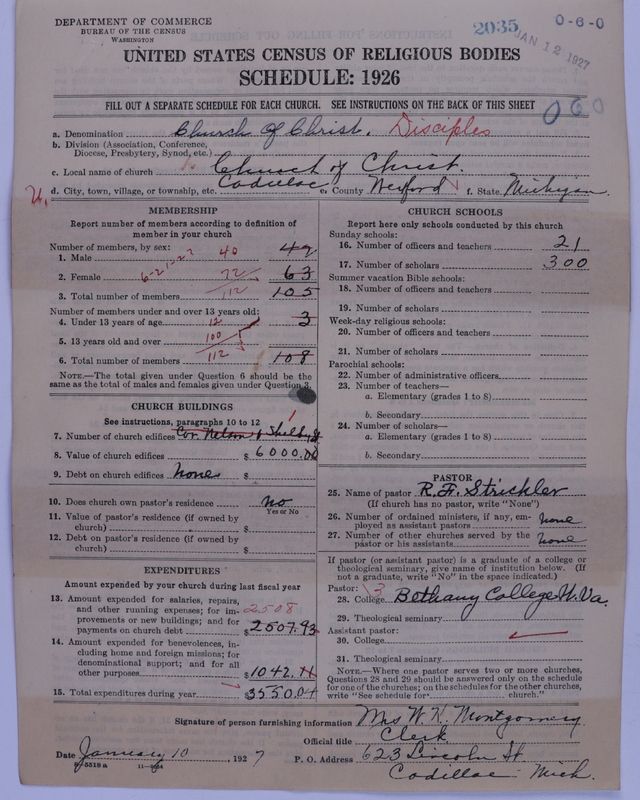 DEPARTMENT OF COMMERCE
BUREAU OF THE CENSUS
WASHINGTON
2035
JAN 12 1927
0-6-0
UNITED STATES CENSUS OF RELIGIOUS BODIES
SCHEDULE: 1926
FILL OUT A SEPARATE SCHEDULE FOR EACH CHURCH. SEE INSTRUCTIONS ON THE BACK OF THIS SHEET
060
a. Denomination Church of Christ. Disciples
b. Division (Association, Conference,
Diocese, Presbytery, Synod, etc.)
c. Local name of church Church of Christ.
d. City, town, village, or township, etc. Cadillac e. County Wexford f. State Michigan.
MEMBERSHIP
Report number of members according to definition of
member in your church
Number of members, by sex:
1. Male 40 42
2. Female 6-21-27 72 63
3. Total number of members 112 105
Number of members under and over 13 years old:
4. Under 13 years of age 12 3
5. 13 years old and over 100
6. Total number of members 112 108
NOTE.—The total given under Question 6 should be the
same as the total of males and females given under Question 3.
CHURCH BUILDINGS
See instructions, paragraphs 10 to 12
7. Number of church edifices Cor. Nelson & Shelby St 1
8. Value of church edifices $ 6000.00
9. Debt on church edifices none $
10. Does church own pastor's residence no
Yes or No
11. Value of pastor's residence (if owned by
church) $
12. Debt on pastor's residence (if owned by
church) $
EXPENDITURES
Amount expended by your church during last fiscal year
13. Amount expended for salaries, repairs,
and other running expenses; for im- 2508
provements or new buildings; and for
payments on church debt $ 2507.93
14. Amount expended for benevolences, in-
cluding home and foreign missions; for
denominational support; and for all
other purposes $ 1042.11
15. Total expenditures during year $ 3550.04
CHURCH SCHOOLS
Report here only schools conducted by this church
Sunday schools:
16. Number of officers and teachers 21
17. Number of scholars 300
Summer vacation Bible schools:
18. Number of officers and teachers
19. Number of scholars
Week-day religious schools:
20. Number of officers and teachers
21. Number of scholars
Parochial schools:
22. Number of administrative officers
23. Number of teachers—
a. Elementary (grades 1 to 8)
b. Secondary
24. Number of scholars—
a. Elementary (grades 1 to 8)
b. Secondary
PASTOR
25. Name of pastor R. F. Strickler
(If church has no pastor, write "None")
26. Number of ordained ministers, if any, em-
ployed as assistant pastors none
27. Number of other churches served by the
pastor or his assistants none
If pastor (or assistant pastor) is a graduate of a college or
theological seminary, give name of institution below. (If
not a graduate, write "No" in the space indicated.)
Pastor: 3
28. College Bethany College W. Va.
29. Theological seminary
Assistant pastor:
30. College
31. Theological seminary
NOTE.—Where one pastor serves two or more churches,
Questions 28 and 29 should be answered only on the schedule
for one of the churches; on the schedules for the other churches,
write "See schedule for church."
Signature of person furnishing information Mrs W. K. Montgomery
Official title Clerk
Date January 10, 1927 P. O. Address 623 Lincoln St.
Cadillac Mich.